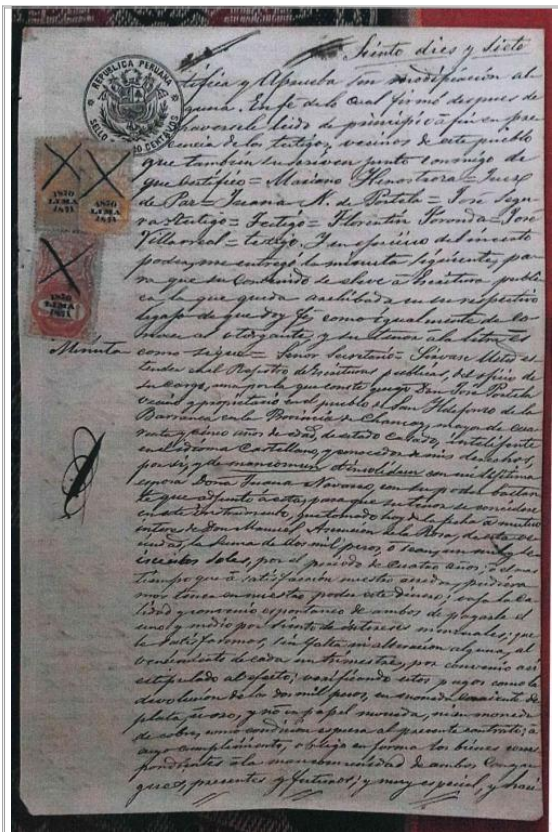 Siento dies y Siete
REPUBLICA PERUANA
SELLO CENTAVOS
tifica y Aprueba sin modificacion al-
guna. En fé de lo Cual firmó despues de
haversele leido de principio á fin en pre
sencia de los testigos, vecinos de este pueblo
que tambien suscriven junto conmigo de
que Certifico = Mariano Henostrosa = Juez
de Paz = Juana N. de Portela = José Segu-
ra = testigo = Testigo = Florentin = José
Villarreal = testigo. I en ejercicio del incerto
poder, me entregó la minuta siguiente, pa
ra que su Contenido se eleve á Escritura publi
ca, la que queda archibada en su respectivo
legajo de que doy fé, como igualmente de co-
nocer al otorgante, y su tenor á la letra es
Minuta
como sigue = Señor Secretario = Sírvase Usted es-
tender en el Registro de Escrituras publicas, del oficio de
su cargo, una por la que conste que yo Don José Portela
vecino y propietario en el pueblo de San Ildefonso de la
Barranca, en la Provincia de Chancay, mayor de cua
renta y cinco años de edad, de estado Casado, inteligente
en el idioma Castellano, y conocedor de mis derechos,
por sí, y de mancomun é insolidum con mi lejitima
esposa Doña Juana Navarro, con su poder bastan
te que adjunto á esta, para que su tenor se considere
en este instrumento, que tomado hoy de la fecha á mutuo
interes de Don Manuel Asencion de la Rosa, de esta ve
cindad, la suma de dos mil pesos, o sean, un mil y se
iscientos soles, por el periodo de Cuatro años; ó el mas
tiempo que á satisfaccion nuestra
mos tener en nuestro poder este dinero; bajo la Ca-
lidad y convenio espontaneo de ambos de pagarle el
uno y medio por Siento de intereses mensuales; que
le satisfaremos, sin falta ni alteracion alguna, al
vencimiento de cada un trimestre, por convenio así
estipulado al efecto; verificando estos pagos como la
devolucion de los dos mil pesos, en moneda corriente de
plata, ú oro, y no en papel moneda, ni en moneda
de cobre, como condicion espresa al presente contrato; á
cuyo cumplimiento, obligo en forma los bienes corres
pondientes á la mancomunidad de ambos Conyu
gues, presentes y futuros; y muy especial, y
1870
LIMA
1871
1870
LIMA
1871
1870
LIMA
1871